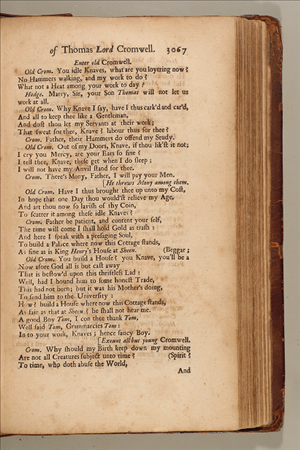 of Thomas Lord Cromwell. 3067
Enter old Cromwell.
Old Crom. You idle Knaves, what are you loytering now?
No Hammers walking, and my work to do?
What not a Heat among your work to day?
Hodge. Marry, Sir, your Son Thomas will not let us
work at all.
Old Crom. Why Knave I say, have I thus cark'd and car'd,
And all to keep thee like a Gentleman,
And dost thou let my Servants at their work;
That sweat for thee, Knave? labour thus for thee?
Crom. Father, their Hammers do offend my Study.
Old Crom. Out of my Doors, Knave, if thou lik'st it not;
I cry you Mercy, are your Ears so fine?
I tell thee, Knave, these get when I do sleep;
I will not have my Anvil stand for thee.
Crom. There's Mony, Father, I will pay your Men.
[He throws Mony among them.
Old Crom. Have I thus brought thee up unto my Cost,
In hope that one Day thou would'st relieve my Age,
And art thou now so lavish of thy Coin,
To scatter it among these idle Knaves?
Crom. Father be patient, and content your self,
The time will come I shall hold Gold as trash:
And here I speak with a presaging Soul,
To build a Palace where now this Cottage stands,
As fine as is King Henry's House at Sheen. (Beggar;
Old Crom. You build a House? you Knave, you'll be a
Now afore God all is but cast away
That is bestow'd upon this thriftless Lad:
Well, had I bound him to some honest Trade,
This had not been; but it was his Mother's doing,
To send him to the University:
How? build a House where now this Cottage stands,
As fair as that at Sheen? he shall not hear me.
A good Boy Tom, I con thee thank Tom,
Well said Tom, Gramarcies Tom:
In to your work, Knaves; hence saucy Boy.
[Exeunt all but young Cromwell.
Crom. Why should my Birth keep down my mounting
Are not all Creatures subject unto time? (Spirit?
To time, who doth abuse the World,
And